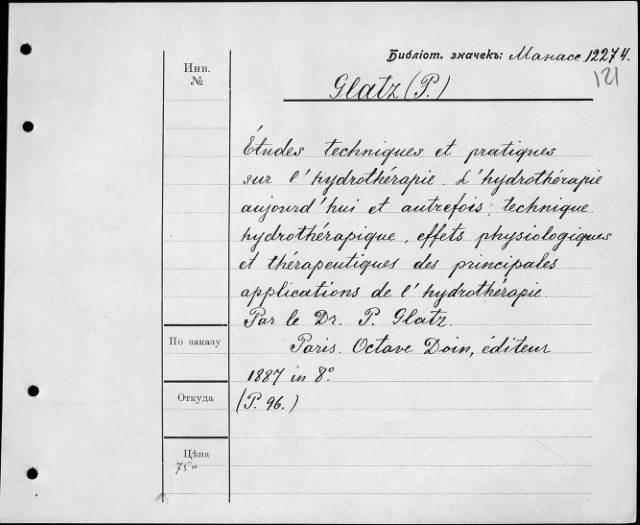 Библіот. значекъ: Манасс 12274.
121
Инв.
№
Glatz (P.)
Études techniques et pratiques
sur l'hydrothérapie. L'hydrothérapie
aujourd'hui et autrefois; technique
hydrothérapique, effets physiologiques
et thérapeutiques des principales
applications de l'hydrothérapie.
Par le Dr. P. Glatz.
По заказу
Paris. Octave Doin, éditeur
1887 in 8°.
Откуда
(P. 96.)
Цѣна
75